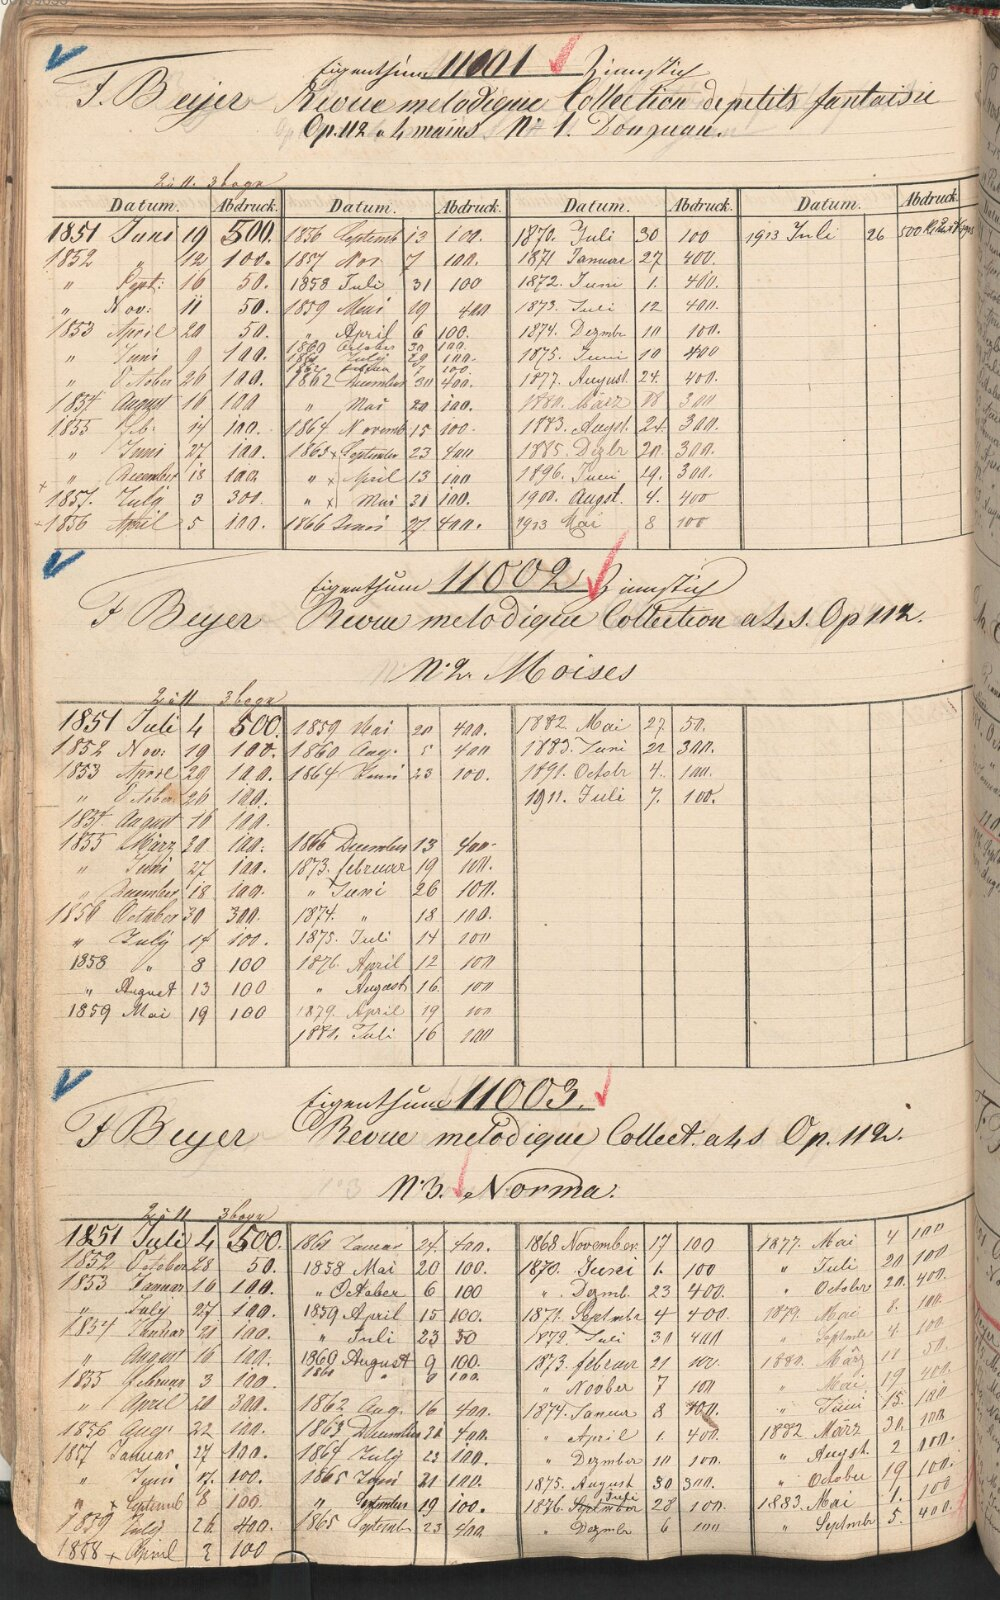 Eigenthum 11001 Zinnstich
F. Beyer Revue melodique Collection de petits fantaisie
Op. 112 a 4 mains No 1. Don Juan.
3 bogn
Datum. Abdruck. Datum. Abdruck. Datum. Abdruck. Datum. Abdruck.
1851 Juni 19 500. 1856 Septemb 13 100. 1870. Juli 30 100 1913 Juli 26 500
1852 " 12 100. 1857 Nov. 7 100. 1871 Januar 27 400.
" Sept: 16 50. 1858 Juli 31 100 1872. Juni 1. 400.
" Nov: 11 50. 1859 Mai 19 400 1873. Juli 12 400.
1853 April 20 50. " April 6 100. 1874. Dezmbr 10 100.
1860 October 30 100.
" Juni 9 100. July 29 100. 1875. Juni 10 400
" October 26 100. 1862 December 30 400. 1877. August. 24. 400.
1854 August 16 100 " Mai 20 100. 1880. März 18 300
1855 Feb. 14 100. 1864 Novemb. 15 100. 1883. Augst. 24. 300.
" Juni 27 100. 1865 x September 23 400 1885. Dezbr 20. 300.
" December 18 100 " x April 13 100 1896. Juni 19. 300.
x 1857. July 3 300. " x Mai 31 100. 1900. Augst. 4. 400
1856 April 5 100. 1866 Juni 27 400. 1913 Mai 8 100
Eigenthum 11002 Zinnstich
F Beyer Revue melodique Collection a 4 s. Op 112.
No 2. Moises
3 bogn
1851 Juli 4 500. 1859 Mai 20 400. 1882. Mai 27. 50.
1852 Nov: 19 100. 1860 Aug. 5 400 1883. Juni 22 300.
1853 April 29 100. 1864 Juni 23 100. 1891. Octobr 4. 100.
" October 26 100. 1911. Juli 7. 100.
1854. August 16 100.
1855 März 20 100. 1866 December 13 400.
" Juni 27 100. 1873. februar 19 100.
" December 18 100. " Juni 26 100.
1856 October 30 300. 1874. " 18 100.
" July 17 100. 1875. Juli 14 100
1858 " 8 100 1876. April 12 100
" August 13 100 " August 16. 100
1859 Mai 19 100 1879. April 19 100
1881. Juli 16 100
Eigenthum 11003.
F Beyer Revue melodique Collect. a 4 s Op. 112.
No 3. Norma.
3 bogn
1851 Juli 4 500. Januar 24. 400. 1868 November. 17 100 1877. Mai 4 100
1852 October 28 50. 1858 Mai 20 100. 1870. Juni 1. 100 " Juli 20 100
1853 Januar 16 100. " October 6 100 " Dezmb. 23 400. " Octobr 20. 400.
" July 27 100. 1859 April 15 100. 1871. Septmbr 4 400 1879. Mai 8. 100
1854 Januar 21 100. " Juli 23 50 1872. Juli 31 400 " Septmbr 4 100.
" August 16 100. 1860 August 9 100. 1873. februar 21 100. 1880. März 11 50.
1855 februar 3 100. " Novber 7 100 " Mai 19 400.
" April 20 300. 1862 Aug. 16 400. 1874. Januar 8 400. " Juni 15. 100
1856 Aug. 22 100. 1863 December 400. " April 1. 400. 1882 März 30. 100
1857 Januar 27 100. 1864 July 23 100. " Dezmber 10 100. " August 2 100.
" Juni 17. 100. 1865 Juni 21 100. 1875. August 30 300. " October 19 100.
" x Septemb 8 100. " September 19 100. 1876. Juli 28 100. 1883. Mai 1. 100
1859 July 26 400. 1865 Septemb. 23 400 " Dezmbr 6 100 " Septmbr 5. 400.
1858 x April 2 100